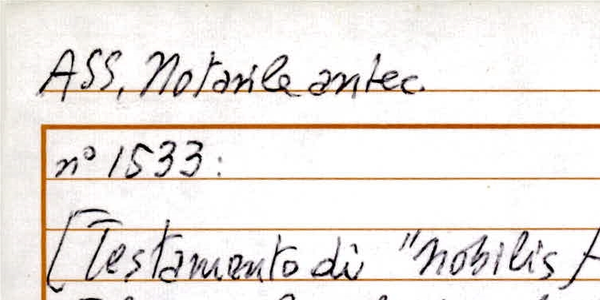 ASS, Notarile antec.
n° 1533:
[Testamento di "nobilis